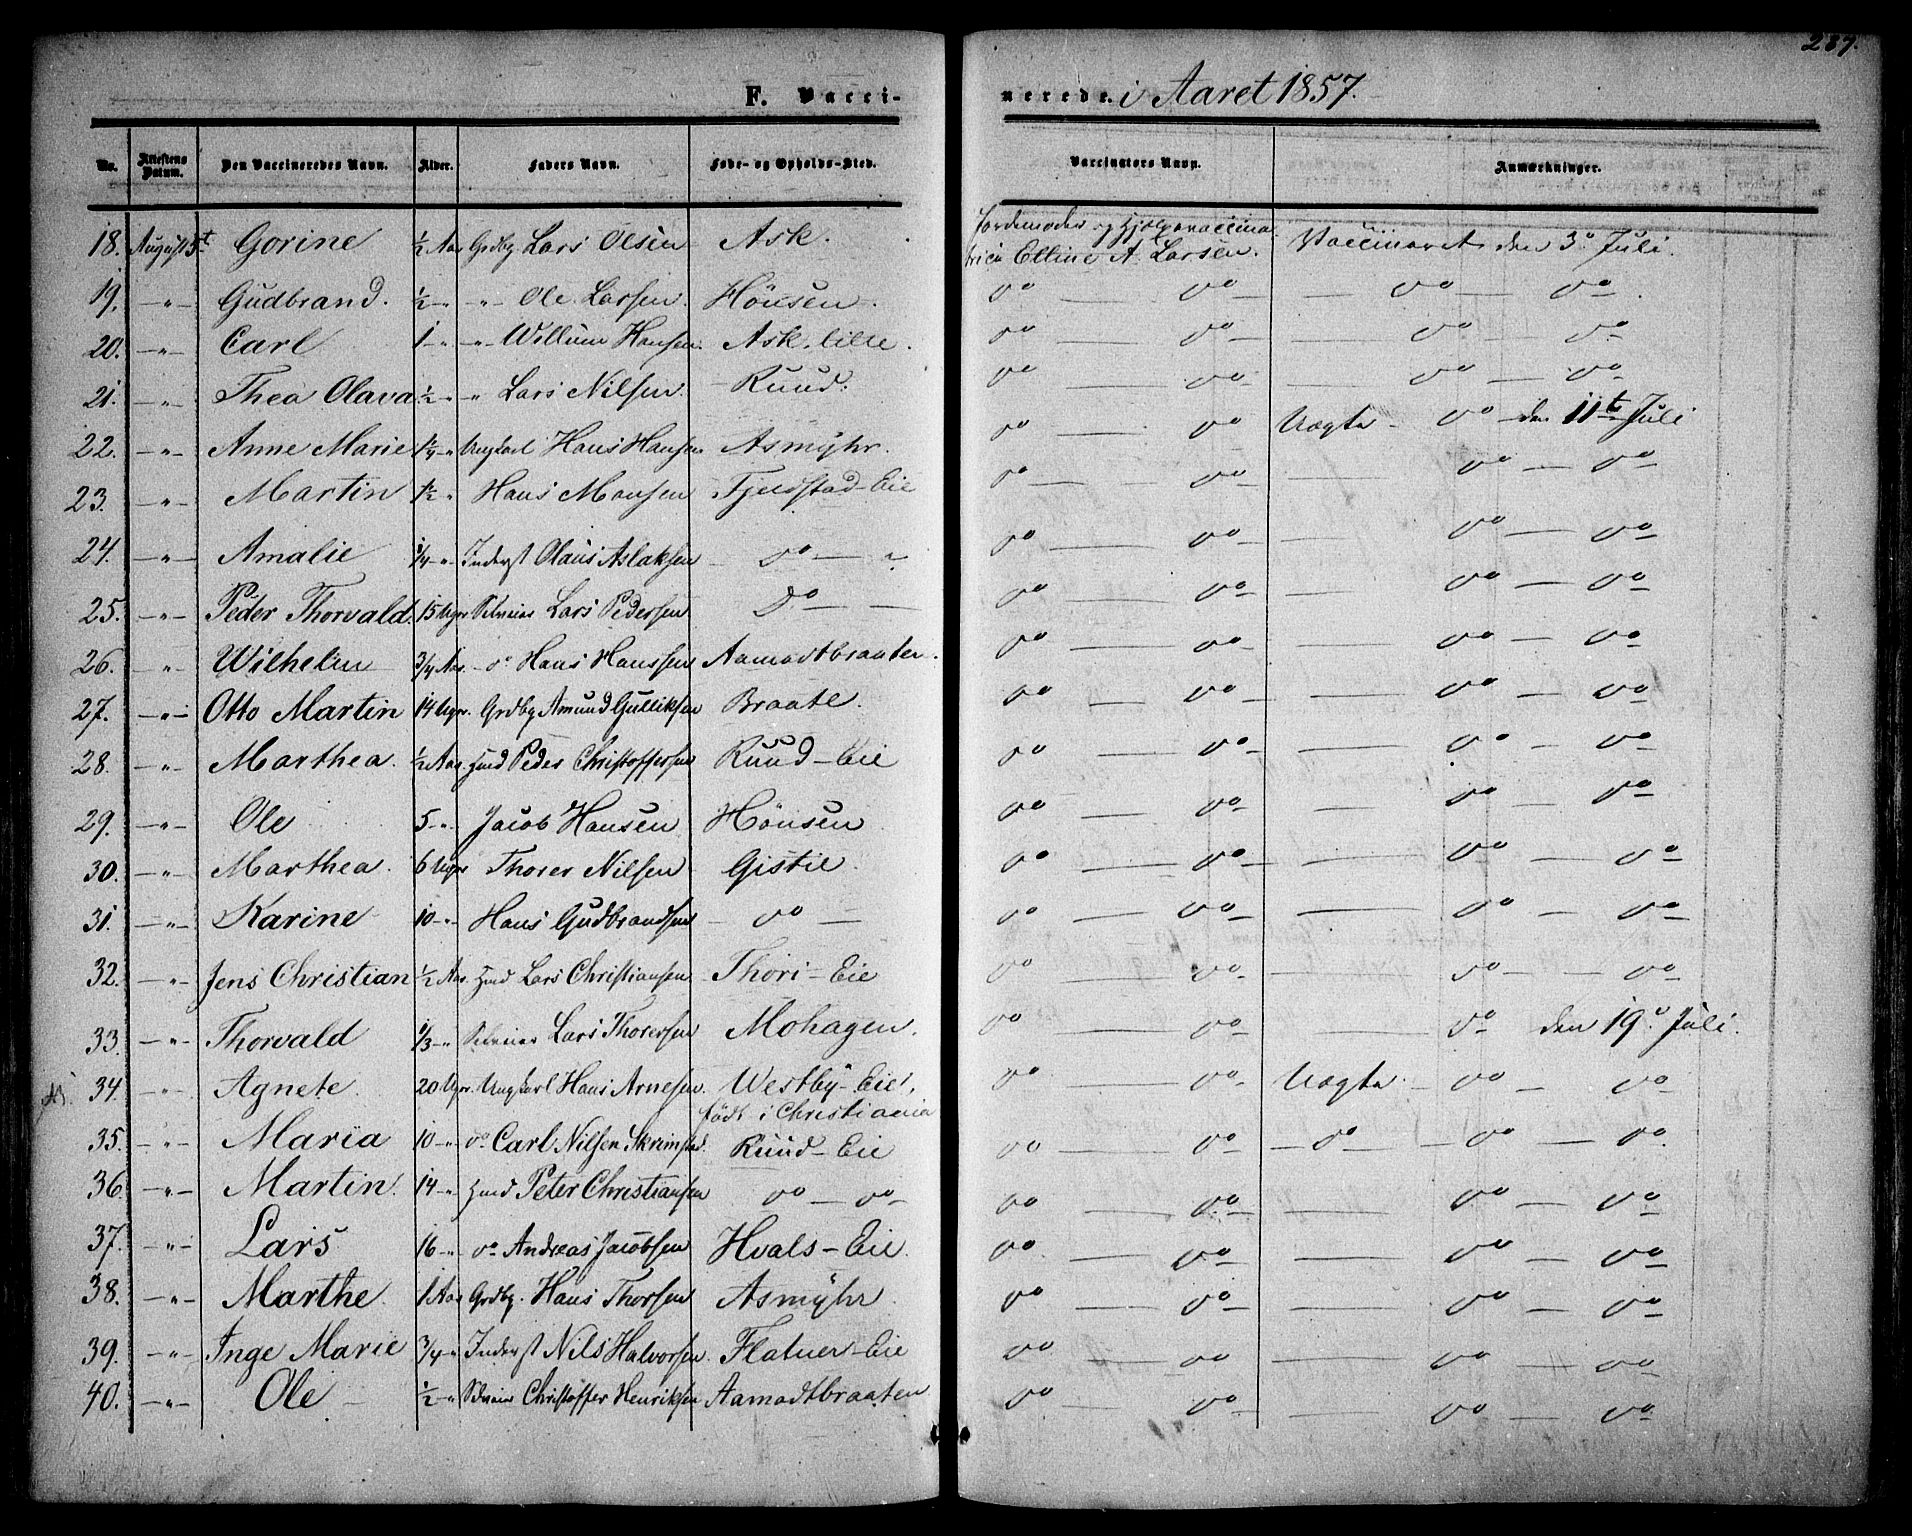 287.
F. Vacci- nerede. i Aaret 1857.
No. Attestens Datum. Den Vaccineredes Navn. Alder. Faders Navn. Føde- og Opholds-Sted. Vaccinators Navn. Anmærkninger.
18. August 5t Gorine 1/2 Aar Grdbg Lars Olsen Ask. Jordemoder og Hjelpevaccina
trice Elline A. Larsen. Vaccineret den 3o Juli.
19. -"- Gudbrand. 1/2 -"- " Ole Larsen. Hönsen. Do — Do — — Do — Do.
20. -"- Carl 1 -"- " Willum Hansen. Ask. lille. Do — Do — — Do — Do.
21. -"- Thea Olava 1/2 -"- " Lars Nilsen. Ruud. Do — Do — — Do — Do
22. " Anne Marie 1 1/4 -"- Ungkarl Hans Hansen Asmÿhr. Do — Do Uægte. Do den 11te Juli
23. " Martin 1 1/2 " Hans Monsen Fjeldstad-Eie Do — Do — — Do — Do
24. -"- Amalie 1/4 -"- Inderst Olaus Aslaksen Do — " Do — Do — — Do — Do
25. -"- Peder Thorvald. 15 Uger Selveier Lars Pedersen Do — — Do — Do — — Do — Do
26. " Wilhelm 3/4 Aar. Do Hans Hanssen Aamodtbraaten. Do — Do — — Do — Do
27. -"- Otto Martin 14 Uger. Grdbg Amund Gulliksen Braate. Do — Do — — Do — Do
28. " Marthea. 1/2 Aar. Hmd Peder Christoffersen Ruud-Eie Do — Do — — Do — Do
29. -"- Ole 5 -"- Jacob Hansen Hönsen Do — Do — — Do — Do
30. -"- Marthea. 6 Uger Thorer Nilsen Gistie. Do — Do — — Do — Do
31. -"- Karine 10 -"- Hans Gudbrandsen — Do — Do — Do — — Do — Do
32. -"- Jens Christian 1/2 Aar. Hmd Lars Christiansen Thori-Eie Do — Do — — Do — Do
33. -"- Thorvald 1/3 -"- Selveier Lars Thorersen Mohagen. Do — Do — — Do den 19o Juli.
34. " Agnete 20 Uger. Ungkarl Hans Arnesen. Westbÿ-Eie, Do — Do Uægte. Do — Do
født i Christiania
35. -"- Maria 10 -"- Do Carl Nilsen Skrimstad. Ruud-Eie Do — Do — Do — Do — Do.
36. -"- Martin. 14 -"- Hmd Peter Christiansen Do — Do Do — Do — — Do — Do
37. -"- Lars 16 -"- Do Andreas Jacobsen Hvals-Eie. Do — Do — — Do — Do
38. -"- Marthe. 1 Aar Grdbg. Hans Thorsen Asmÿhr. Do — Do — — Do — Do
39. -"- Inge Marie 3/4 -"- Inderst Nils Halvorsen. Flatner-Eie Do — Do — — Do — Do
40. -"- Ole 1/2 -"- Selveier Christoffer Henriksen Aamodtbraaten Do — Do — — Do — Do